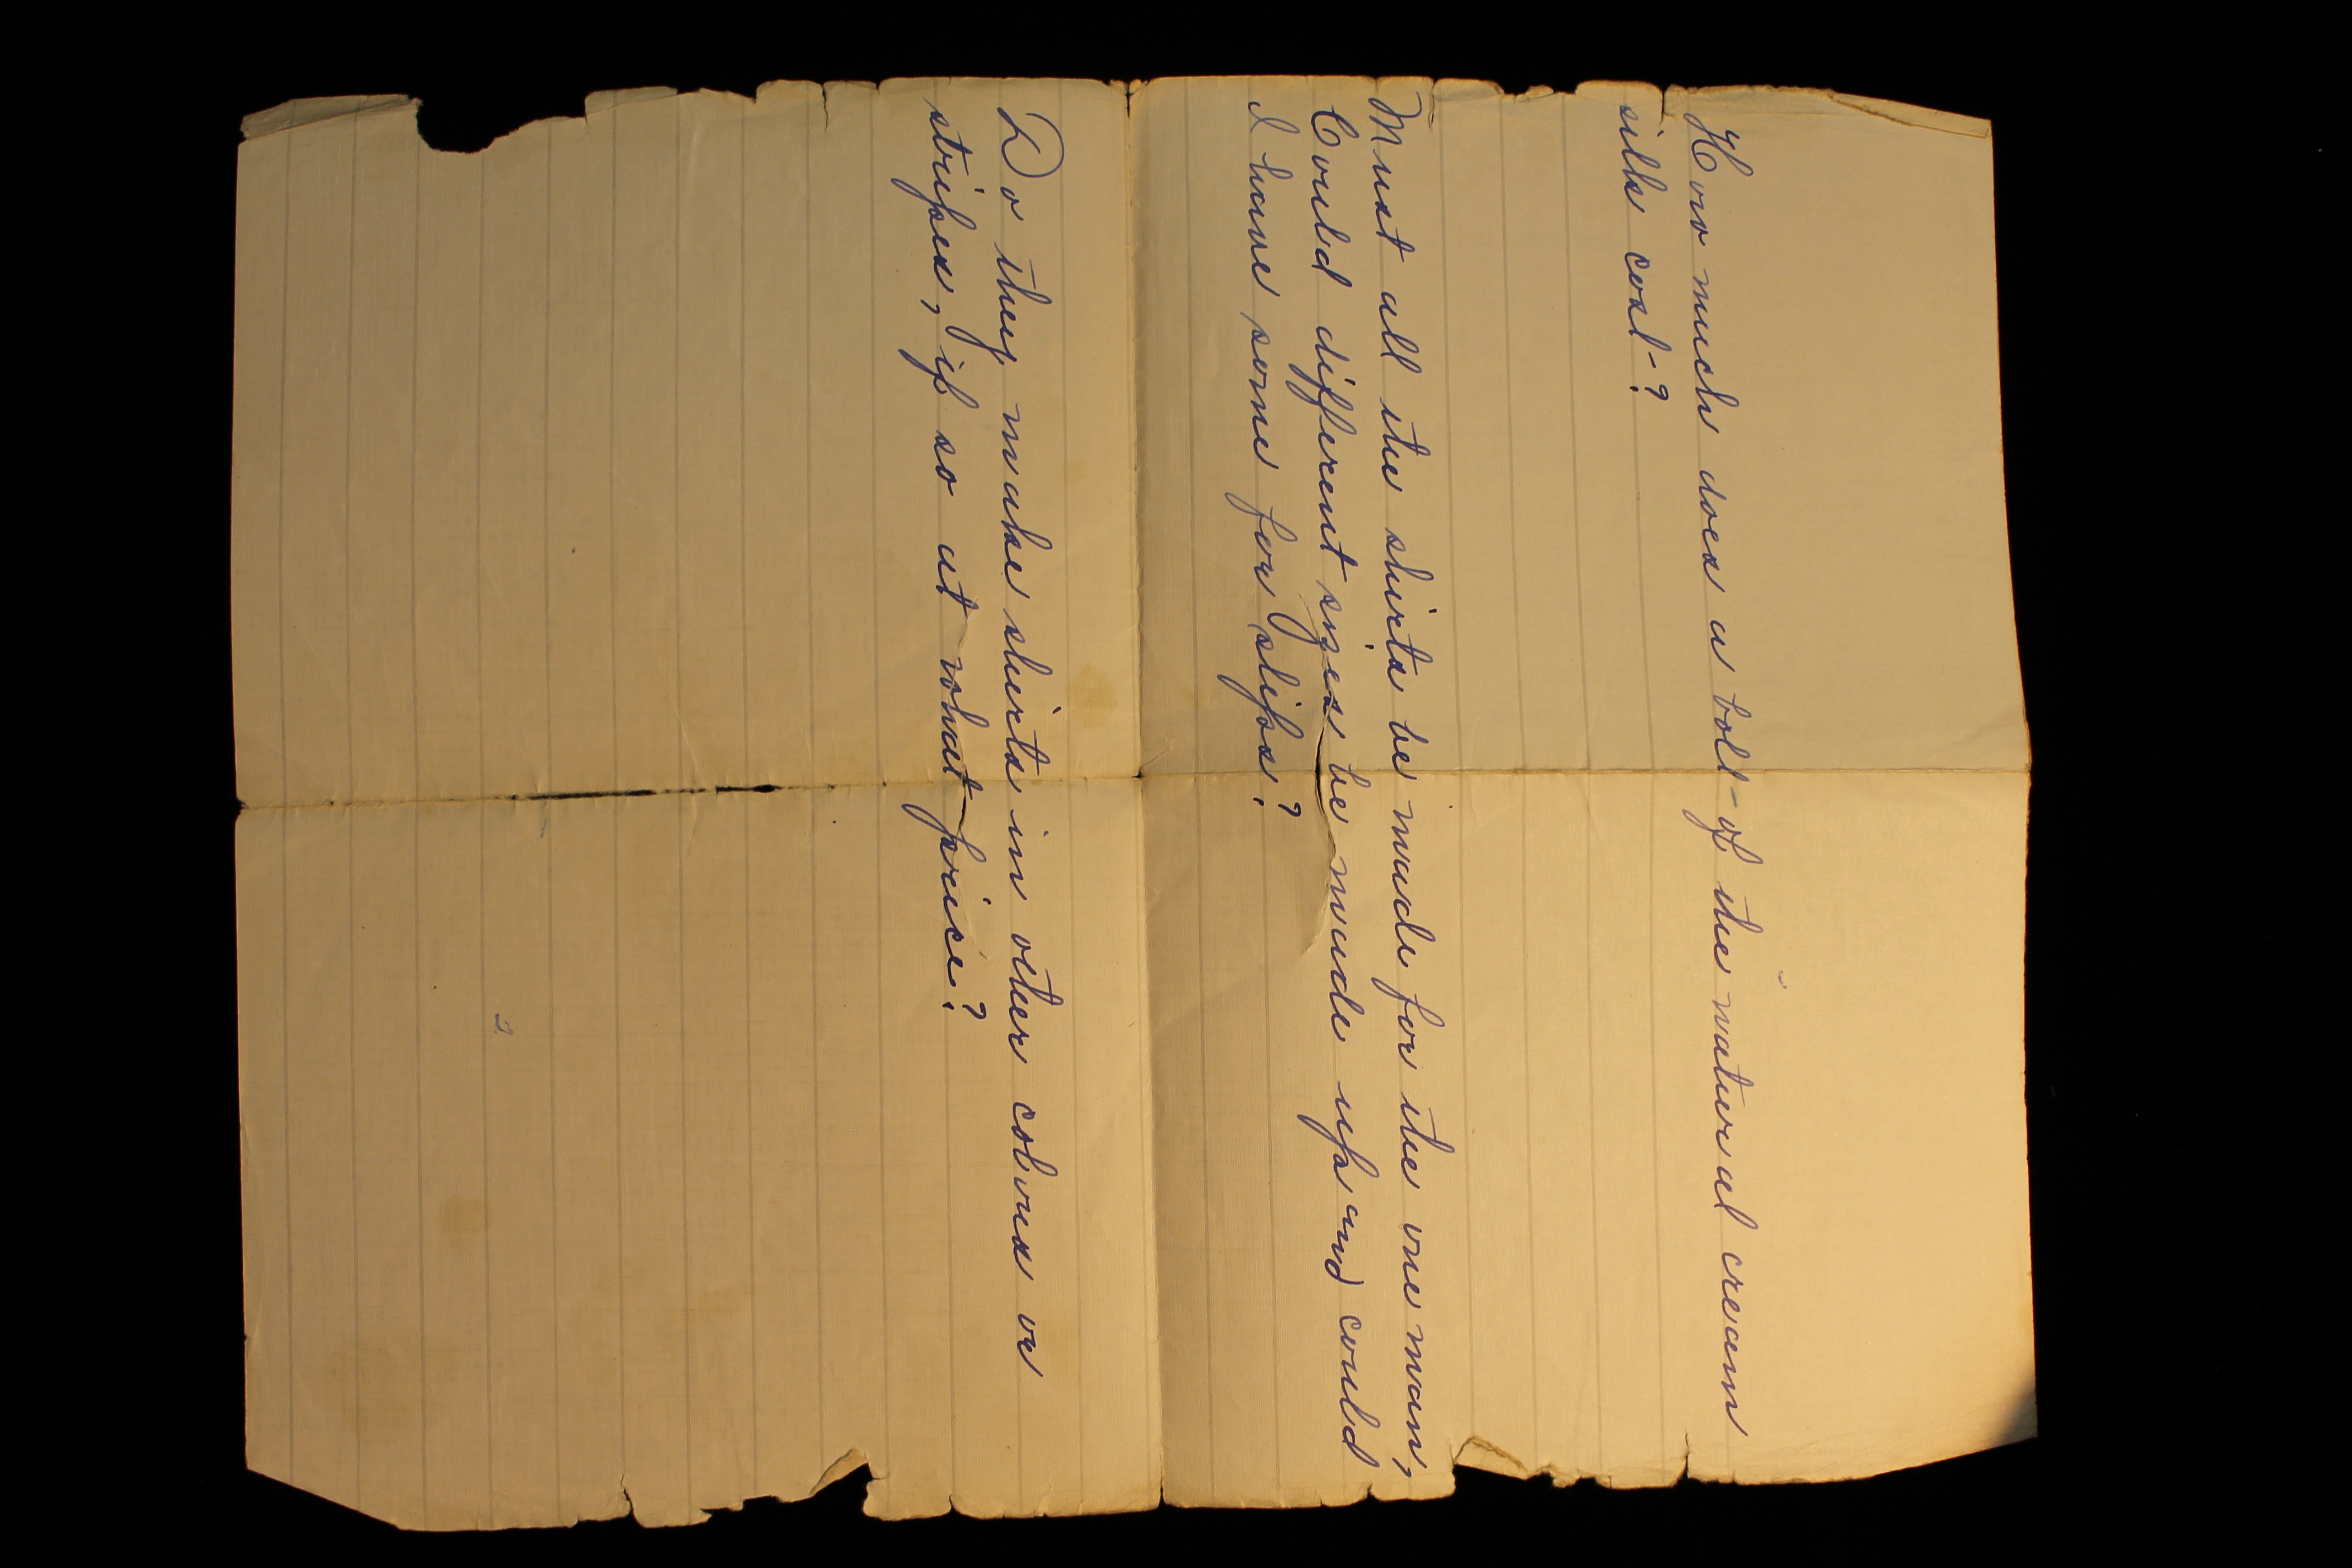 How much does a bolt of the natural cream
silk cost?
Must all the shirts be made for the one man,
Could different sizes be made up and could
I have some for slips?
Do they make shirts in other colours or
stripes, if so at what price?